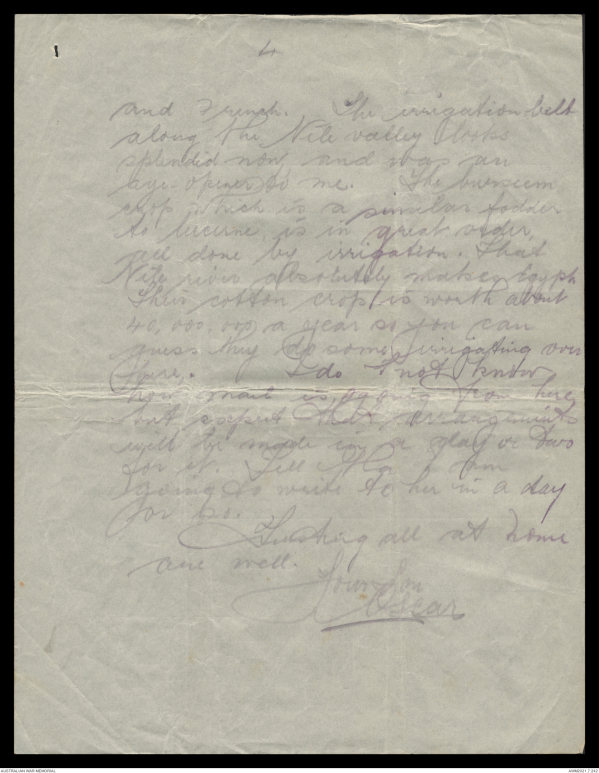 4
and French. The irrigation belt
along the Nile valley looks
splendid now, and was an
eye-opener to me. The burseem
crop which is a similar fodder
to lucerne, is in great order,
all done by irrigation. That
Nile river absolutely makes Egypt.
Their cotton crop is worth about
40,000,000 a year so you can
guess they do some irrigating over
here. I do not know
how mail is going from here,
but expect that arrangements
will be made in a day or two
for it. Tell I am
going to write to her in a day
or so.
Trusting all at home
are well.
Your Son
Oscar
AUSTRALIAN WAR MEMORIAL